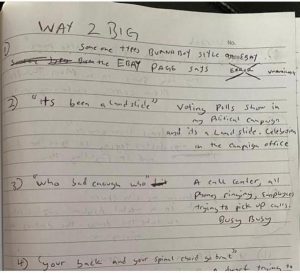 WAY 2 BIG
NO.
1) Some one types BURNA BOY STYLE on EBAY
Burna the EBAY PAGE says ERROR
2) "its been a landslide" Voting Polls show in
my Political Campaign
and its a Landslide. Celebration
in the Campaign office
3) "Who bad enough who" A call center, all
phones ringing, employees
trying to pick up calls.
Busy Busy
4) "your back and your spinal chord go brat"
trying to